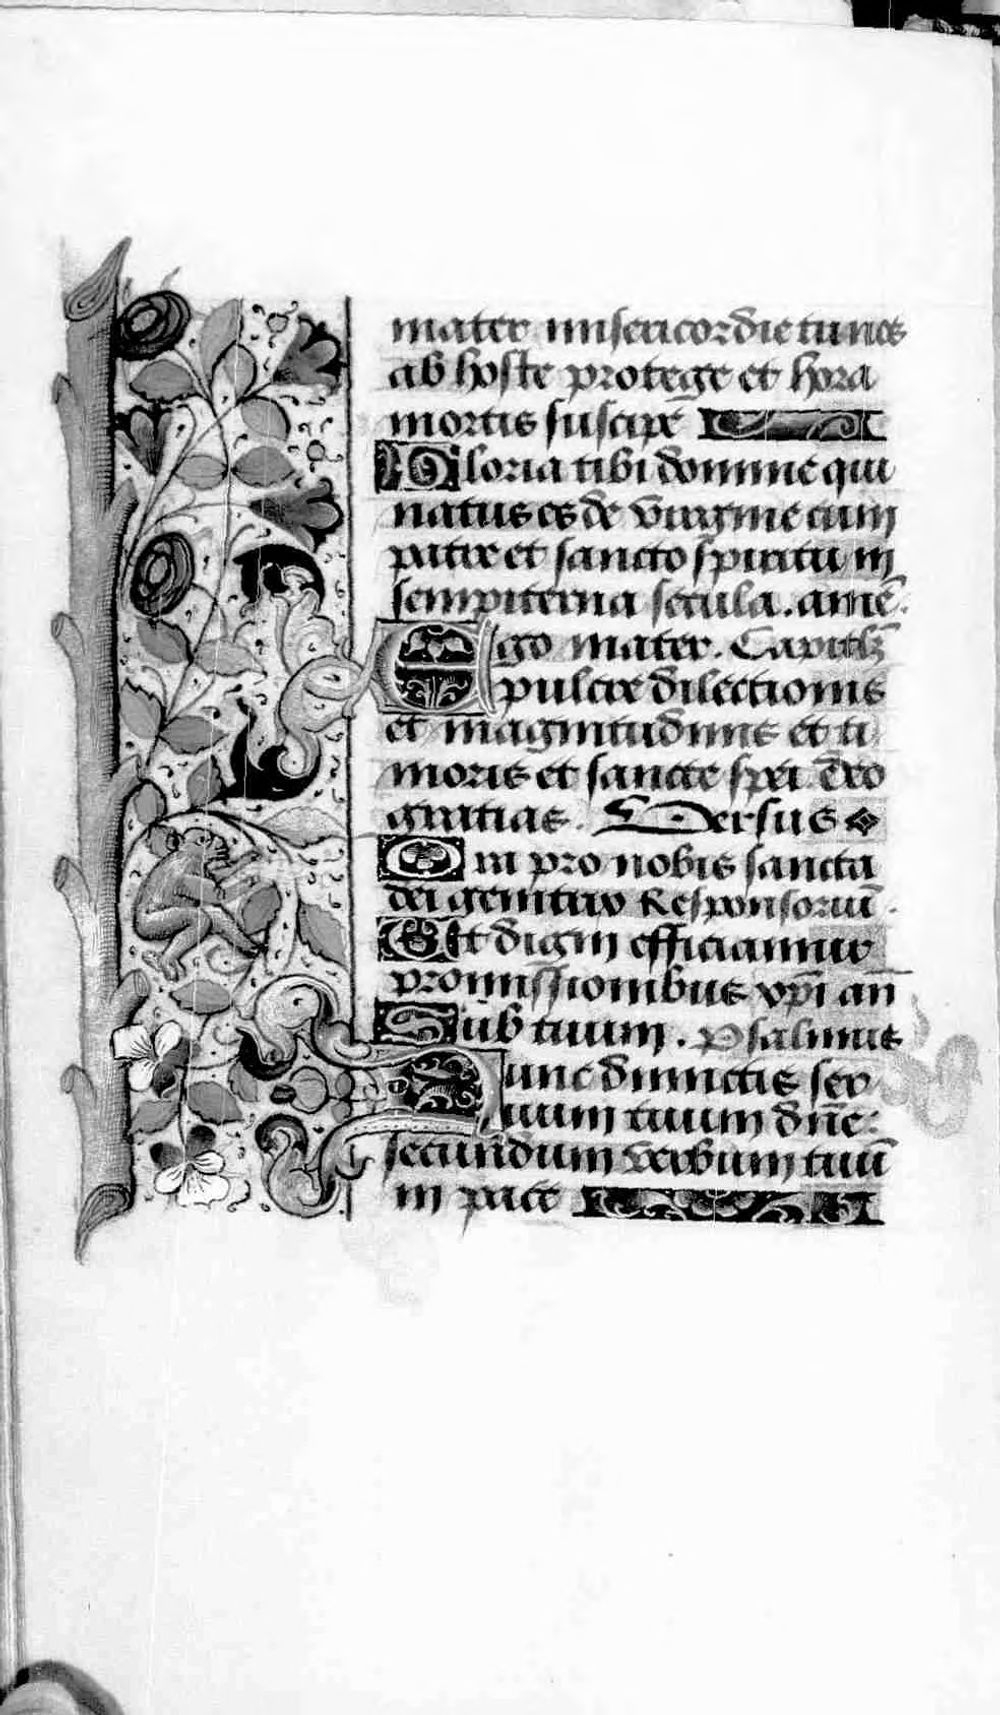 mater misericordie tu nos
ab hoste protege et hora
mortis suscipe
Gloria tibi domine qui
natus es de virgine cum
patre et sancto spiritu in
sempiterna secula. amē.
Ego mater. Capitlʒ
pulcre dilectionis
et magnitudinis et ti
moris et sancte spei. deo
gratias. Versus
Ora pro nobis sancta
dei genitrix Responsoriū.
Ut digni efficiamur
promissionibus xp̄i am̄
Sub tuum. Psalmus
Nunc dimictis ser
uum tuum dn̄e:
secundum verbum tuū
in pace